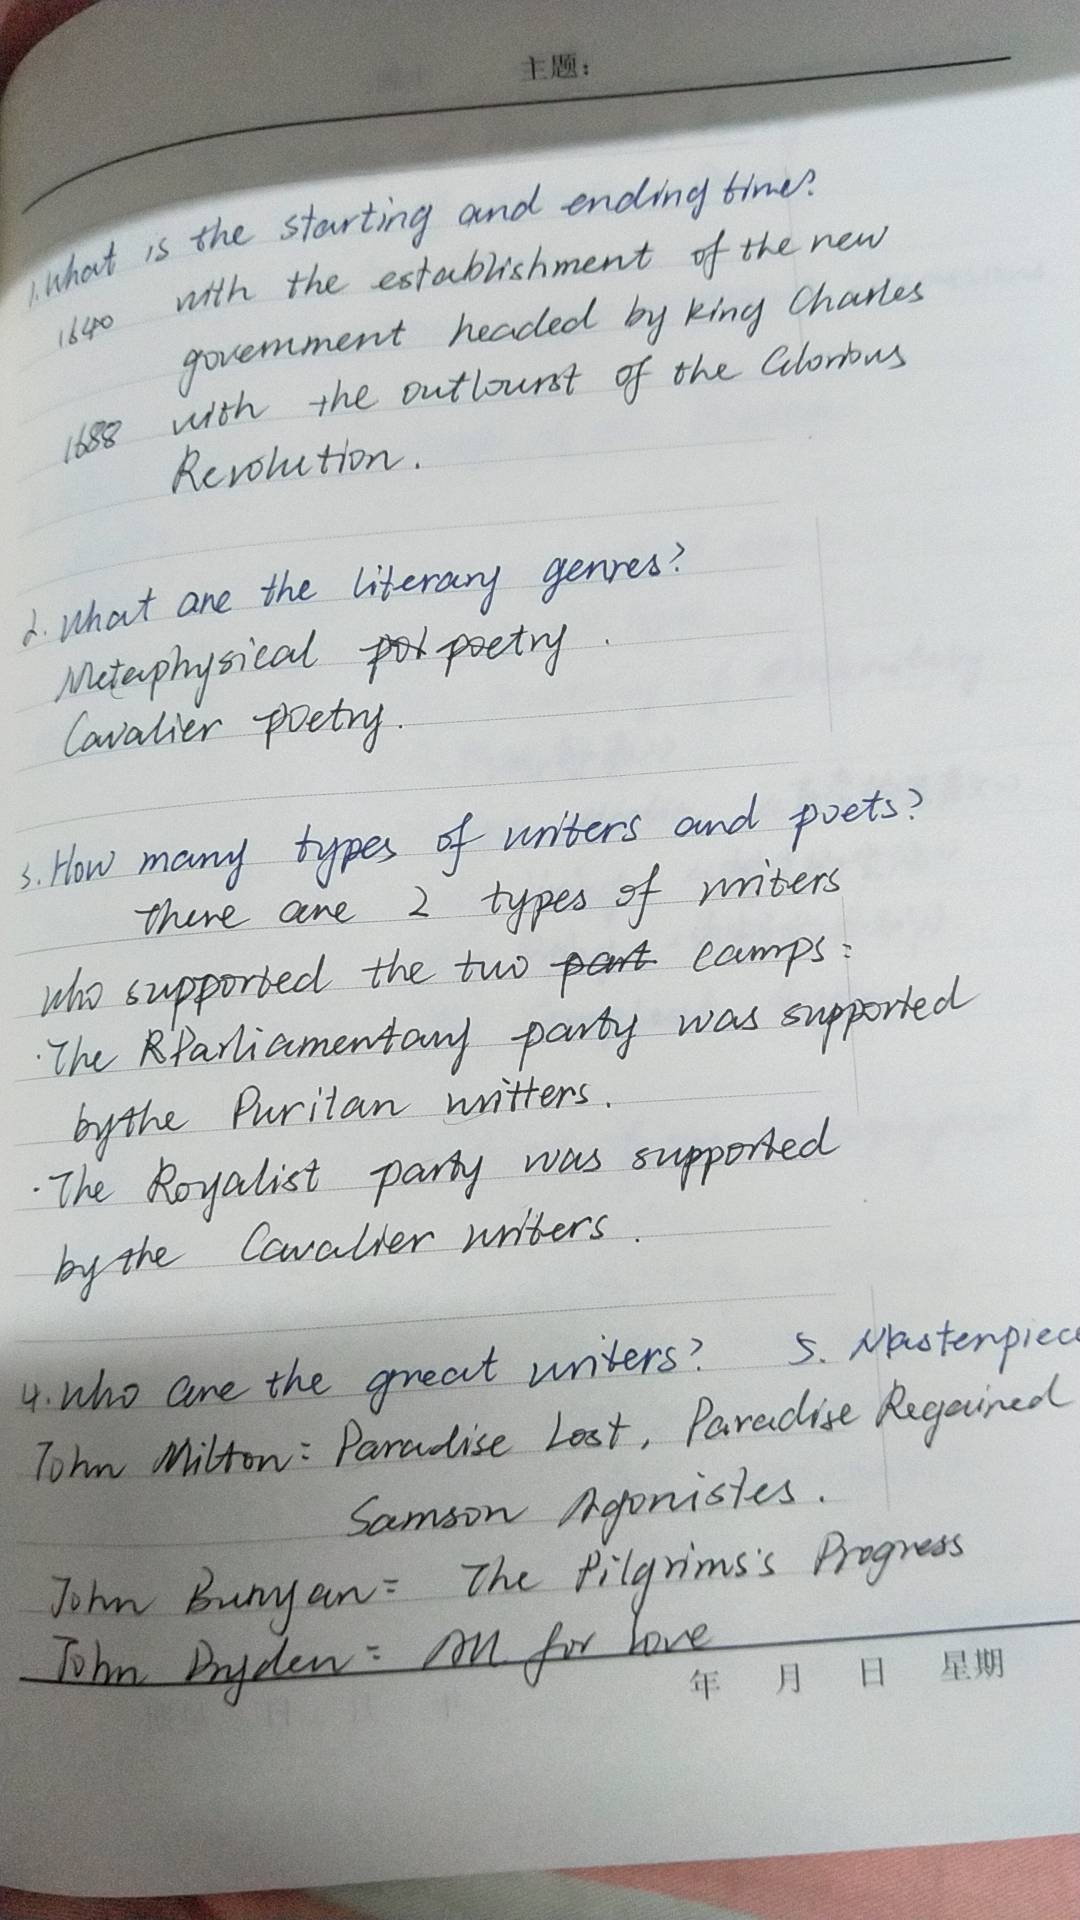 主题:
1. What is the starting and ending time?
1640 with the establishment of the new
government headed by King Charles
1688 with the outburst of the Glorious
Revolution.
2. What are the literary genres?
Metaphysical poetry.
Cavalier poetry.
3. How many types of writers and poets?
There are 2 types of writers
who supported the two part camps:
·The Parliamentary party was supported
by the Puritan writters.
·The Royalist party was supported
by the Cavalier writers.
4. Who are the great writers? 5. Masterpiece
John Milton: Paradise Lost, Paradise Regained
Samson Agonistes.
John Bunyan: The Pilgrims's Progress
John Dryden: All for love
年 月 日 星期